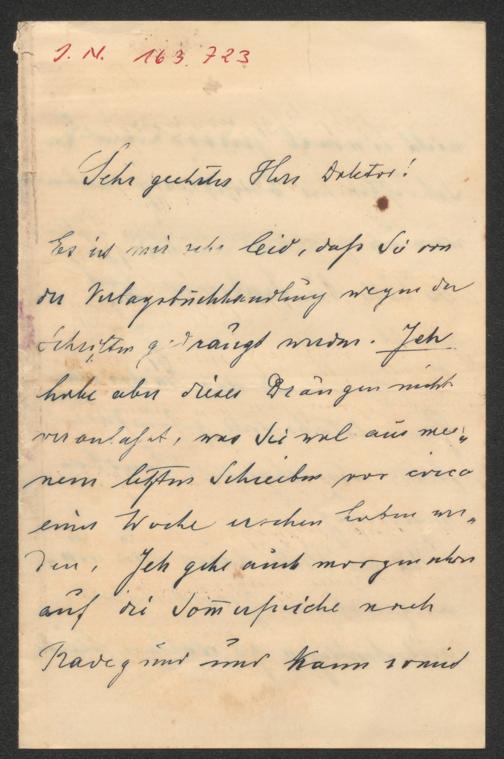 J. N. 163.723
Sehr geehrter Herr Doktor!
Es ist mir sehr leid, daß Sie von
der Verlagsbuchhandlung wegen der
Schriften gedrängt werden. Ich
habe aber dieses Drängen nicht
veranlaßt, was Sie wol aus mei„
nem letzten Schreiben vor circa
einer Woche ersehen haben wer„
den. Ich gehe auch morgen schon
auf die Som̅erfrische nach
Radegund und kann somit